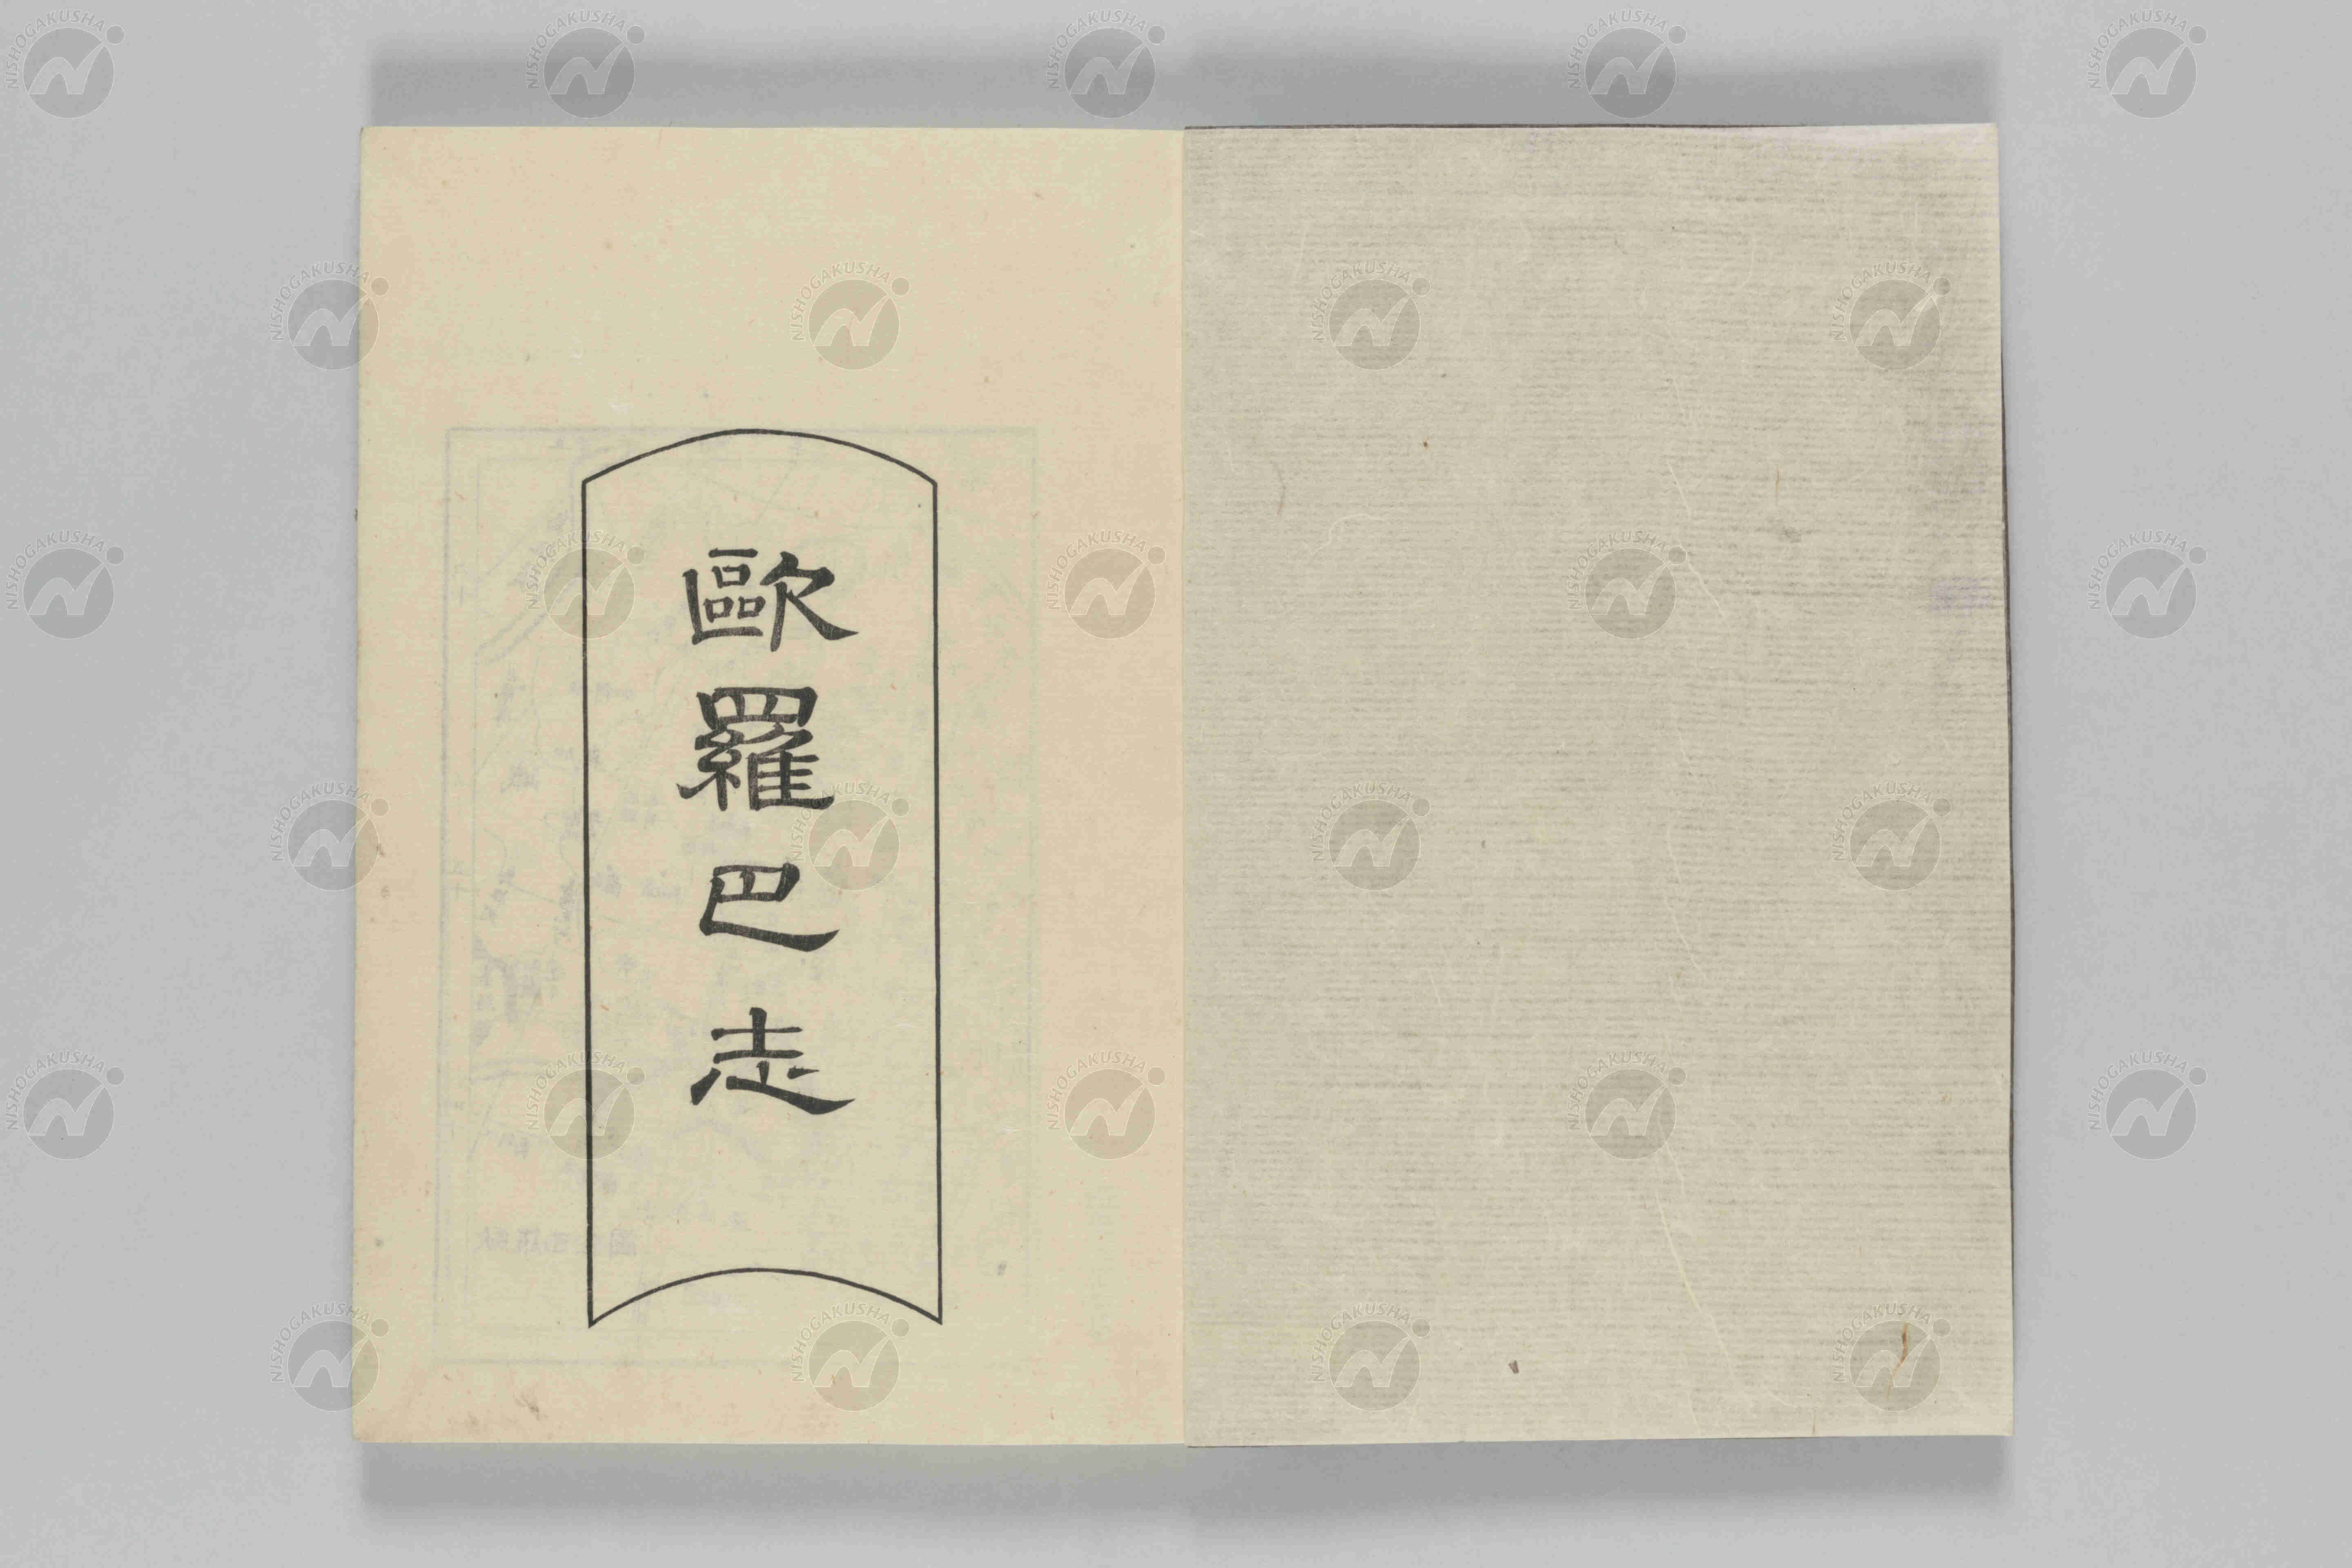 歐羅巴志
NISHOGAKUSHA